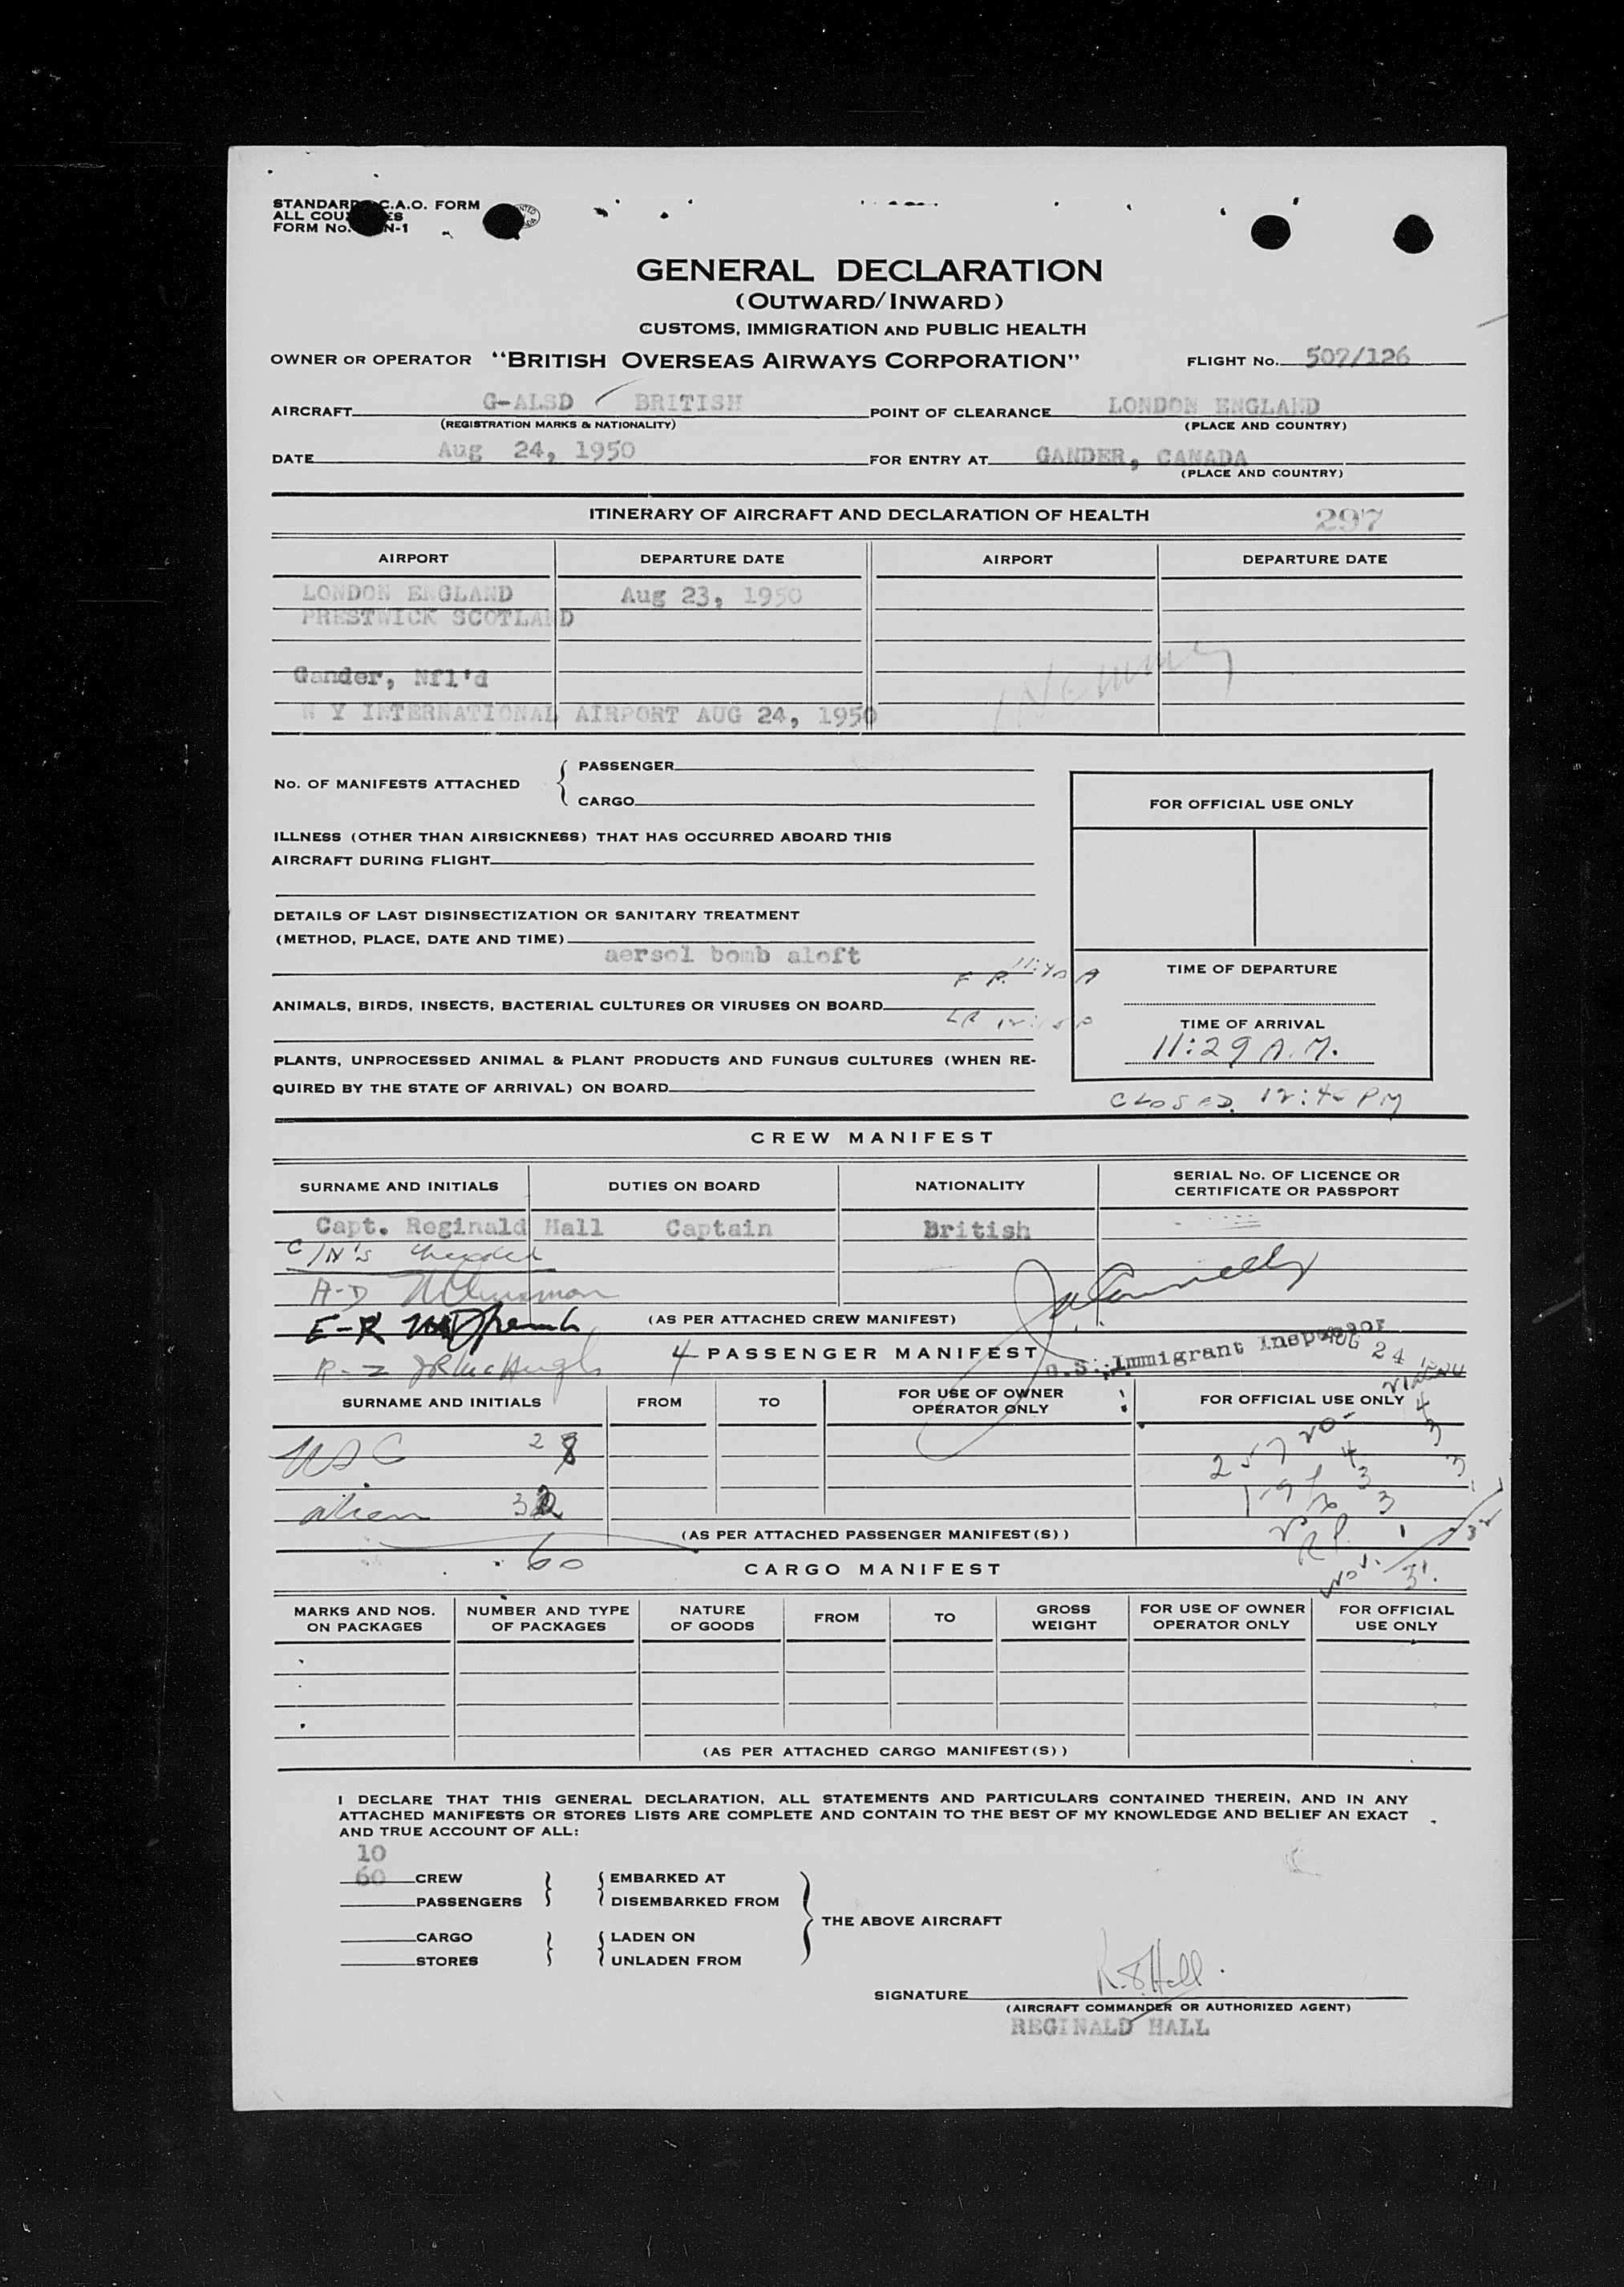 STANDARD C.A.O. FORM
ALL COU ES
FORM No. N-1
GENERAL DECLARATION
(OUTWARD/INWARD)
CUSTOMS, IMMIGRATION AND PUBLIC HEALTH
OWNER OR OPERATOR "BRITISH OVERSEAS AIRWAYS CORPORATION" FLIGHT No. 507/126
AIRCRAFT G-ALSD / BRITISH POINT OF CLEARANCE LONDON ENGLAND
(REGISTRATION MARKS & NATIONALITY) (PLACE AND COUNTRY)
DATE Aug 24, 1950 FOR ENTRY AT GANDER, CANADA
(PLACE AND COUNTRY)
ITINERARY OF AIRCRAFT AND DECLARATION OF HEALTH 297
AIRPORT DEPARTURE DATE AIRPORT DEPARTURE DATE
LONDON ENGLAND Aug 23, 1950
PRESTWICK SCOTLAND
Gander, Nfl'd
N Y INTERNATIONAL AIRPORT AUG 24, 1950
No. OF MANIFESTS ATTACHED { PASSENGER
CARGO
FOR OFFICIAL USE ONLY
ILLNESS (OTHER THAN AIRSICKNESS) THAT HAS OCCURRED ABOARD THIS
AIRCRAFT DURING FLIGHT
DETAILS OF LAST DISINSECTIZATION OR SANITARY TREATMENT
(METHOD, PLACE, DATE AND TIME)
aersol bomb aloft
F R 11:40 A
TIME OF DEPARTURE
ANIMALS, BIRDS, INSECTS, BACTERIAL CULTURES OR VIRUSES ON BOARD
TIME OF ARRIVAL
11:29 A.M.
PLANTS, UNPROCESSED ANIMAL & PLANT PRODUCTS AND FUNGUS CULTURES (WHEN RE-
QUIRED BY THE STATE OF ARRIVAL) ON BOARD
CLOSED 12:40 PM
CREW MANIFEST
SURNAME AND INITIALS DUTIES ON BOARD NATIONALITY SERIAL No. OF LICENCE OR
CERTIFICATE OR PASSPORT
Capt. Reginald Hall Captain British
C/N's checked
A-D
E-R
(AS PER ATTACHED CREW MANIFEST)
R-Z
4 PASSENGER MANIFEST
U.S. Immigrant Inspector
AUG 24 1950
SURNAME AND INITIALS FROM TO FOR USE OF OWNER
OPERATOR ONLY FOR OFFICIAL USE ONLY
USC 28
alien 32
(AS PER ATTACHED PASSENGER MANIFEST(S))
60
CARGO MANIFEST
MARKS AND NOS.
ON PACKAGES NUMBER AND TYPE
OF PACKAGES NATURE
OF GOODS FROM TO GROSS
WEIGHT FOR USE OF OWNER
OPERATOR ONLY FOR OFFICIAL
USE ONLY
(AS PER ATTACHED CARGO MANIFEST(S))
I DECLARE THAT THIS GENERAL DECLARATION, ALL STATEMENTS AND PARTICULARS CONTAINED THEREIN, AND IN ANY
ATTACHED MANIFESTS OR STORES LISTS ARE COMPLETE AND CONTAIN TO THE BEST OF MY KNOWLEDGE AND BELIEF AN EXACT
AND TRUE ACCOUNT OF ALL:
10
60 CREW } { EMBARKED AT
PASSENGERS } { DISEMBARKED FROM
THE ABOVE AIRCRAFT
CARGO } { LADEN ON
STORES } { UNLADEN FROM
SIGNATURE R. S. Hall.
(AIRCRAFT COMMANDER OR AUTHORIZED AGENT)
REGINALD HALL